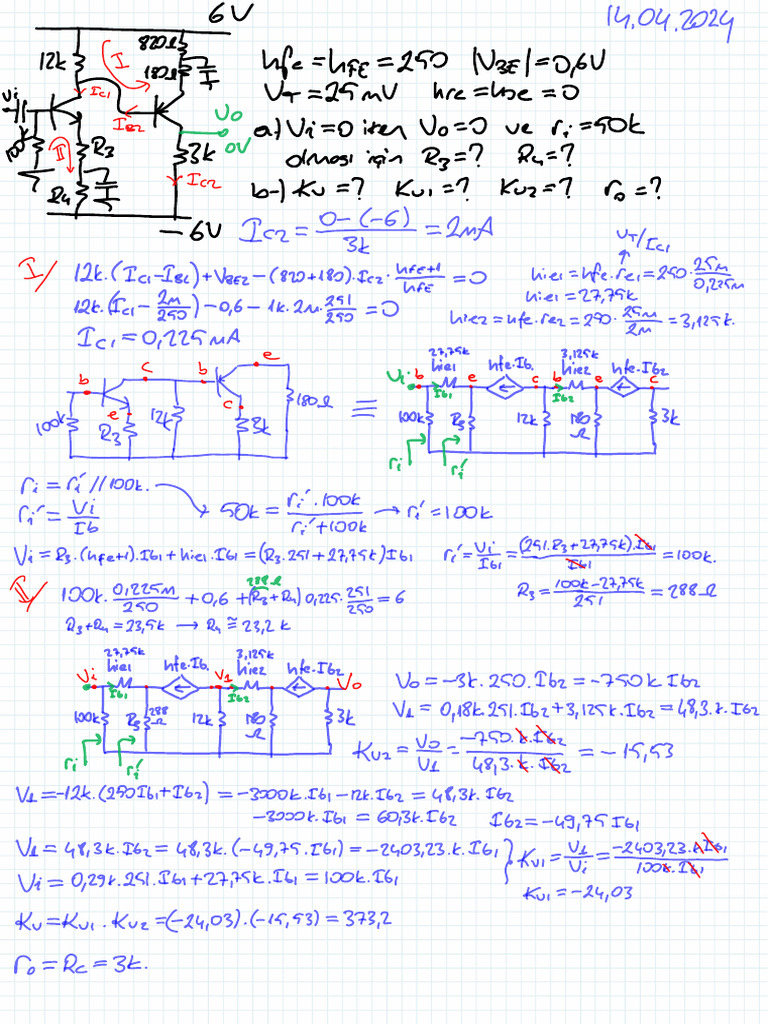 14.04.2024
6V
820Ω
12k
180Ω
I
Vi
IC1
IB2
Vo
0V
100k
II
R3
3k
IC2
R4
-6V
hfe = hFE = 250 |VBE| = 0,6V
VT = 25mV hre = hoe = 0
a-) Vi = 0 iken Vo = 0 ve ri = 50k
olması için R3 = ? R4 = ?
b-) Kv = ? Kv1 = ? Kv2 = ? ro = ?
IC2 = (0-(-6))/3k = 2mA
I/ 12k.(IC1-IB2)+VBE2-(820+180).IC2.(hFE+1)/hFE = 0
12k.(IC1-2m/250)-0,6-1k.2m.251/250 = 0
IC1 = 0,225mA
VT/IC1
hie1 = hfe.re1 = 250.25m/0,225m
hie1 = 27,75k
hie2 = hfe.re2 = 250.25m/2m = 3,125k.
b c b e
e c
100k R3 12k 3k 180Ω
≡
27,75k 3,125k
hie1 hfe.Ib1 hie2 hfe.Ib2
Vi b e c b e c
Ib1 Ib2
100k R3 12k 180Ω 3k
ri ri'
ri = ri' // 100k.
ri' = Vi/Ib
50k = ri'.100k/(ri'+100k) → ri' = 100k
Vi = R3.(hfe+1).Ib1 + hie1.Ib1 = (R3.251+27,75k)Ib1
ri' = Vi/Ib1 = (251.R3+27,75k).Ib1/Ib1 = 100k.
R3 = (100k-27,75k)/251 = 288Ω
288Ω
II/ 100k.0,225m/250 + 0,6 + (R3+R4)0,225.251/250 = 6
R3+R4 = 23,5k → R4 ≅ 23,2k
27,75k 3,125k
hie1 hfe.Ib1 hie2 hfe.Ib2
Vi V1 Vo
Ib1 Ib2
100k R3 288Ω 12k 180Ω 3k
ri ri'
Vo = -3k.250.Ib2 = -750k Ib2
V1 = 0,18k.251.Ib2 + 3,125k.Ib2 = 48,3.k.Ib2
Kv2 = Vo/V1 = -750.k.Ib2/48,3.k.Ib2 = -15,53
V1 = -12k.(250Ib1+Ib2) = -3000k.Ib1-12k.Ib2 = 48,3k.Ib2
-3000k.Ib1 = 60,3k.Ib2 Ib2 = -49,75Ib1
V1 = 48,3k.Ib2 = 48,3k.(-49,75.Ib1) = -2403,23.k.Ib1
Vi = 0,29k.251.Ib1 + 27,75k.Ib1 = 100k.Ib1
Kv1 = V1/Vi = -2403,23.k.Ib1/100k.Ib1
Kv1 = -24,03
Kv = Kv1.Kv2 = (-24,03).(-15,53) = 373,2
ro = Rc = 3k.